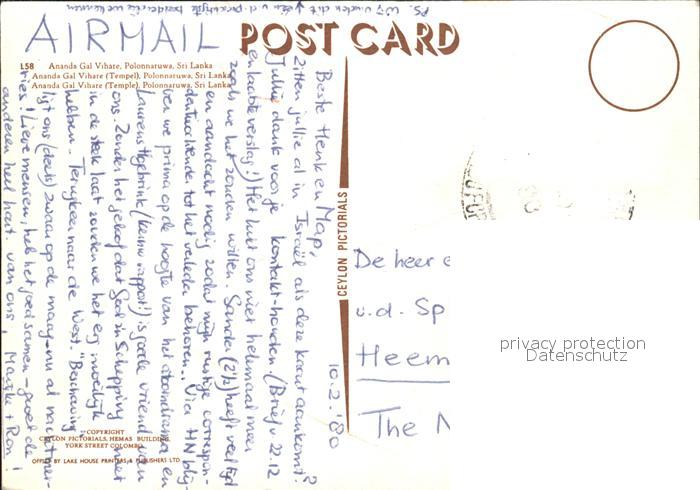 AIRMAIL
POST CARD
L58 Ananda Gal Vihare, Polonnaruwa, Sri Lanka
Ananda Gal Vihare (Tempel), Polonnaruwa, Sri Lanka
Ananda Gal Vihare (Temple), Polonnaruwa, Sri Lanka
10.2.'80
Beste Henk en Map,
Zitten jullie al in Israël als deze kaart aankomt?
Jullie dank voor je kontakt-houden. (Brief v. 22.12
en laatste verslag!) Het lukt ons niet helemaal meer
zoals we het zouden willen. Sander (2½) heeft veel tijd
en aandacht nodig zodat mijn rustige correspon-
dentieochtenden tot het verleden behoren. Via HN blij-
ven we prima op de hoogte van het atoomdrama en
Laurens Hogebrink (kernrapport!) is goede vriend van
ons. Zonder het geloof dat God z'n Schepping niet
in de steek laat zouden we het erg moeilijk
hebben. Terugkeer naar de West. "Beschaving"
ligt ons (deels) zwaar op de maag - nu al nachtmer-
ries! Lieve mensen, heb het goed samen - groet de
anderen heel hart. van ons, Marijke + Ron!
PS. Wij vinden dit
CEYLON PICTORIALS
COPYRIGHT
CEYLON PICTORIALS, HEMAS BUILDING,
YORK STREET COLOMBO.
OFFSET BY LAKE HOUSE PRINTERS & PUBLISHERS LTD.
De heer e
v.d. Sp
Heem
The N
privacy protection
Datenschutz